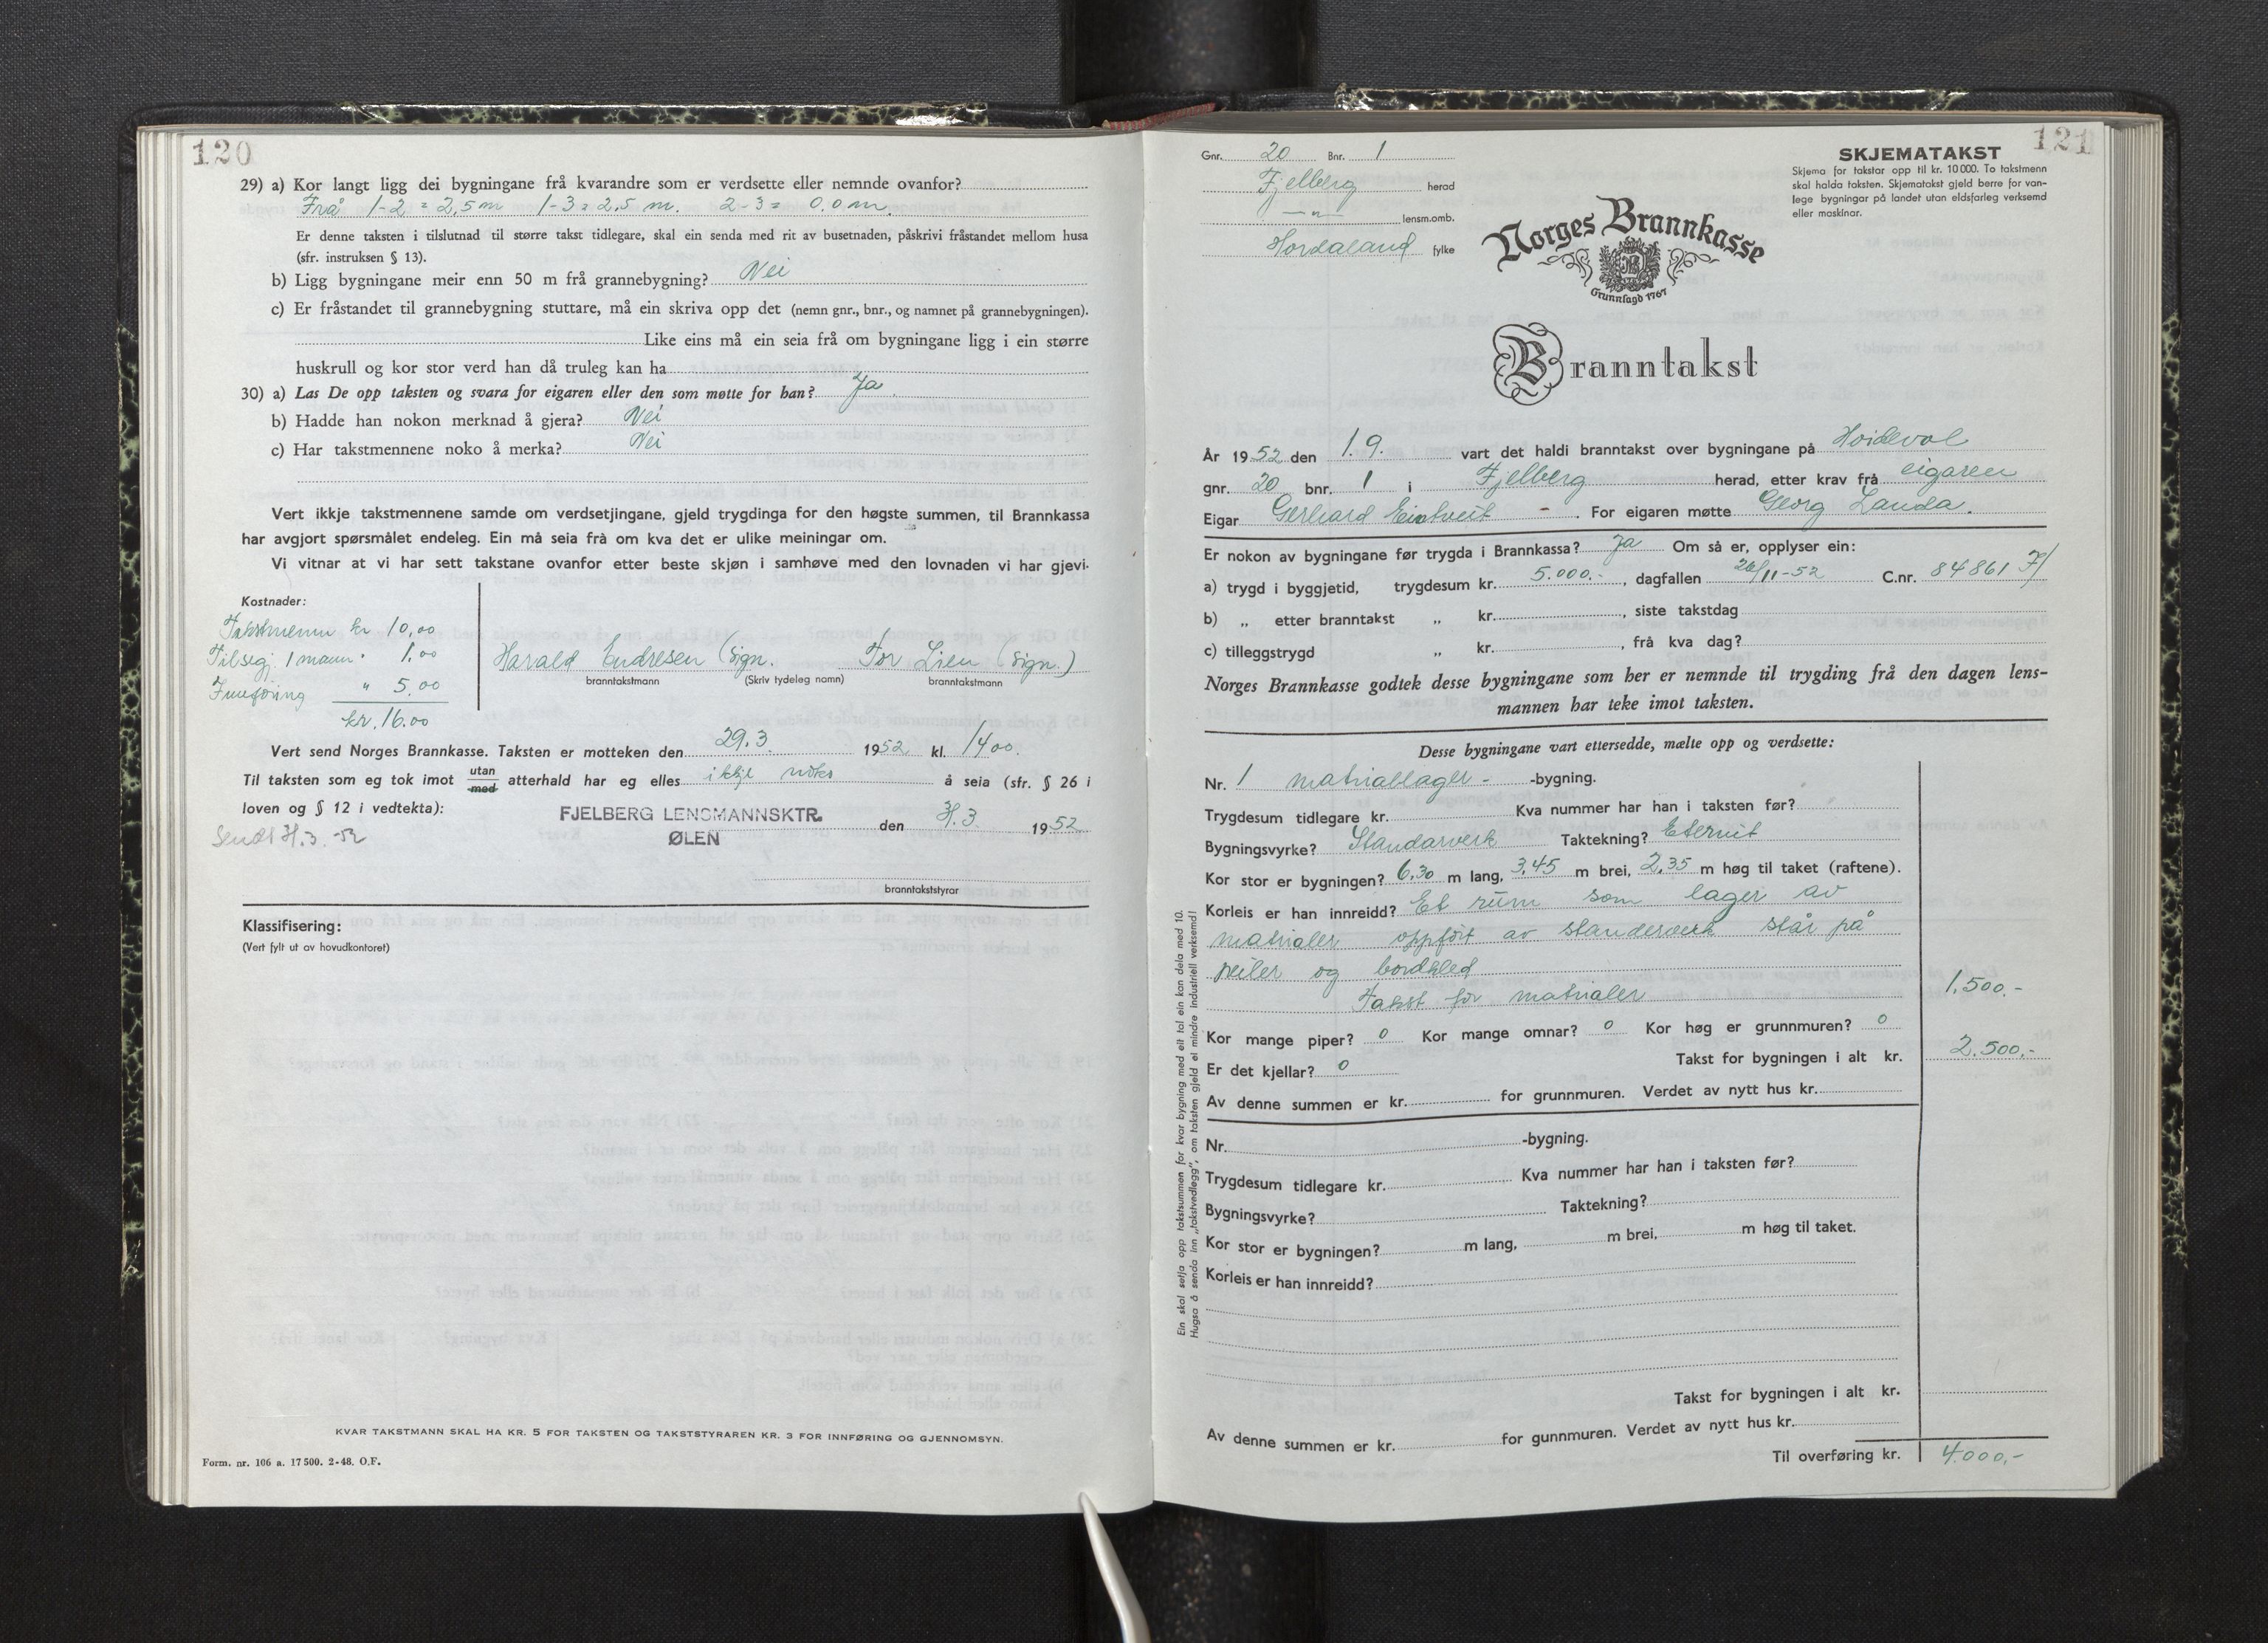 120
29) a) Kor langt ligg dei bygningane frå kvarandre som er verdsette eller nemnde ovanfor?
Frå 1-2 = 2,5 m 1-3 = 2,5 m. 2-3 = 0,0 m.
Er denne taksten i tilslutnad til større takst tidlegare, skal ein senda med rit av busetnaden, påskrivi fråstandet mellom husa
(sfr. instruksen § 13).
b) Ligg bygningane meir enn 50 m frå grannebygning? Nei
c) Er fråstandet til grannebygning stuttare, må ein skriva opp det (nemn gnr., bnr., og namnet på grannebygningen).
Like eins må ein seia frå om bygningane ligg i ein større
huskrull og kor stor verd han då truleg kan ha
30) a) Las De opp taksten og svara for eigaren eller den som møtte for han? Ja
b) Hadde han nokon merknad å gjera? Nei
c) Har takstmennene noko å merka? Nei
Vert ikkje takstmennene samde om verdsetjingane, gjeld trygdinga for den høgste summen, til Brannkassa
har avgjort spørsmålet endeleg. Ein må seia frå om kva det er ulike meiningar om.
Vi vitnar at vi har sett takstane ovanfor etter beste skjøn i samhøve med den lovnaden vi har gjevi.
Kostnader:
Takstmenn kr 10,00
Tilsegj. 1 mann " 1,00
Innføring " 5,00
kr. 16.00
Harald Endresen (sign. Tor Lien (sign.)
branntakstmann (Skriv tydeleg namn) branntakstmann
Vert send Norges Brannkasse. Taksten er motteken den 29.3. 1952 kl. 14 00.
Til taksten som eg tok imot utan med atterhald har eg elles ikkje noko å seia (sfr. § 26 i
loven og § 12 i vedtekta):
FJELBERG LENSMANNSKTR.
ØLEN
den 31.3. 1952
Sendt 31.3.-52
branntakststyrar
Klassifisering:
(Vert fylt ut av hovudkontoret)
KVAR TAKSTMANN SKAL HA KR. 5 FOR TAKSTEN OG TAKSTSTYRAREN KR. 3 FOR INNFØRING OG GJENNOMSYN.
Form. nr. 106 a. 17 500. 2-48. O.F.
121
Gnr. 20 Bnr. 1
Fjelberg herad
—"— lensm.omb.
Hordaland fylke
SKJEMATAKST
Skjema for takstar opp til kr. 10 000. To takstmenn
skal halda taksten. Skjematakst gjeld berre for van-
lege bygningar på landet utan eldsfarleg verksemd
eller maskinar.
Norges Brannkasse
Grunnlagd 1767
Branntakst
År 1952 den 1.9. vart det haldi branntakst over bygningane på Hoidevol
gnr. 20 bnr. 1 i Fjelberg herad, etter krav frå eigaren
Eigar Gerhard Eintveit - . For eigaren møtte Georg Landa.
Er nokon av bygningane før trygda i Brannkassa? Ja Om så er, opplyser ein:
a) trygd i byggjetid, trygdesum kr. 5.000.-, dagfallen 26/11-52 C.nr. 84861 F/
b) „ etter branntakst „ kr. , siste takstdag
c) tilleggstrygd „ kr. , frå kva dag?
Norges Brannkasse godtek desse bygningane som her er nemnde til trygding frå den dagen lens-
mannen har teke imot taksten.
Desse bygningane vart ettersedde, mælte opp og verdsette:
Nr. 1 matriallager - -bygning.
Trygdesum tidlegare kr. Kva nummer har han i taksten før?
Bygningsvyrke? Standarverk Taktekning? Eternit
Kor stor er bygningen? 6,30 m lang, 3,45 m brei, 2,35 m høg til taket (raftene).
Korleis er han innreidd? Et rum som lager av
matrialer oppført av standerverk står på
peiler og bordkled
Takst for matrialer 1.500.-
Kor mange piper? 0 Kor mange omnar? 0 Kor høg er grunnmuren? 0
Er det kjellar? 0 Takst for bygningen i alt kr. 2.500.-
Av denne summen er kr. for grunnmuren. Verdet av nytt hus kr.
Nr. -bygning.
Trygdesum tidlegare kr. Kva nummer har han i taksten før?
Bygningsvyrke? Taktekning?
Kor stor er bygningen? m lang, m brei, m høg til taket.
Korleis er han innreidd?
Takst for bygningen i alt kr.
Av denne summen er kr. for gunnmuren. Verdet av nytt hus kr.
Til overføring kr. 4.000,-
Ein skal setja opp takstsummen for kvar bygning med eit tal ein kan dela med 10.
Hugsa å senda inn „takstvedlegg", om taksten gjeld ei mindre industriell verksemd!